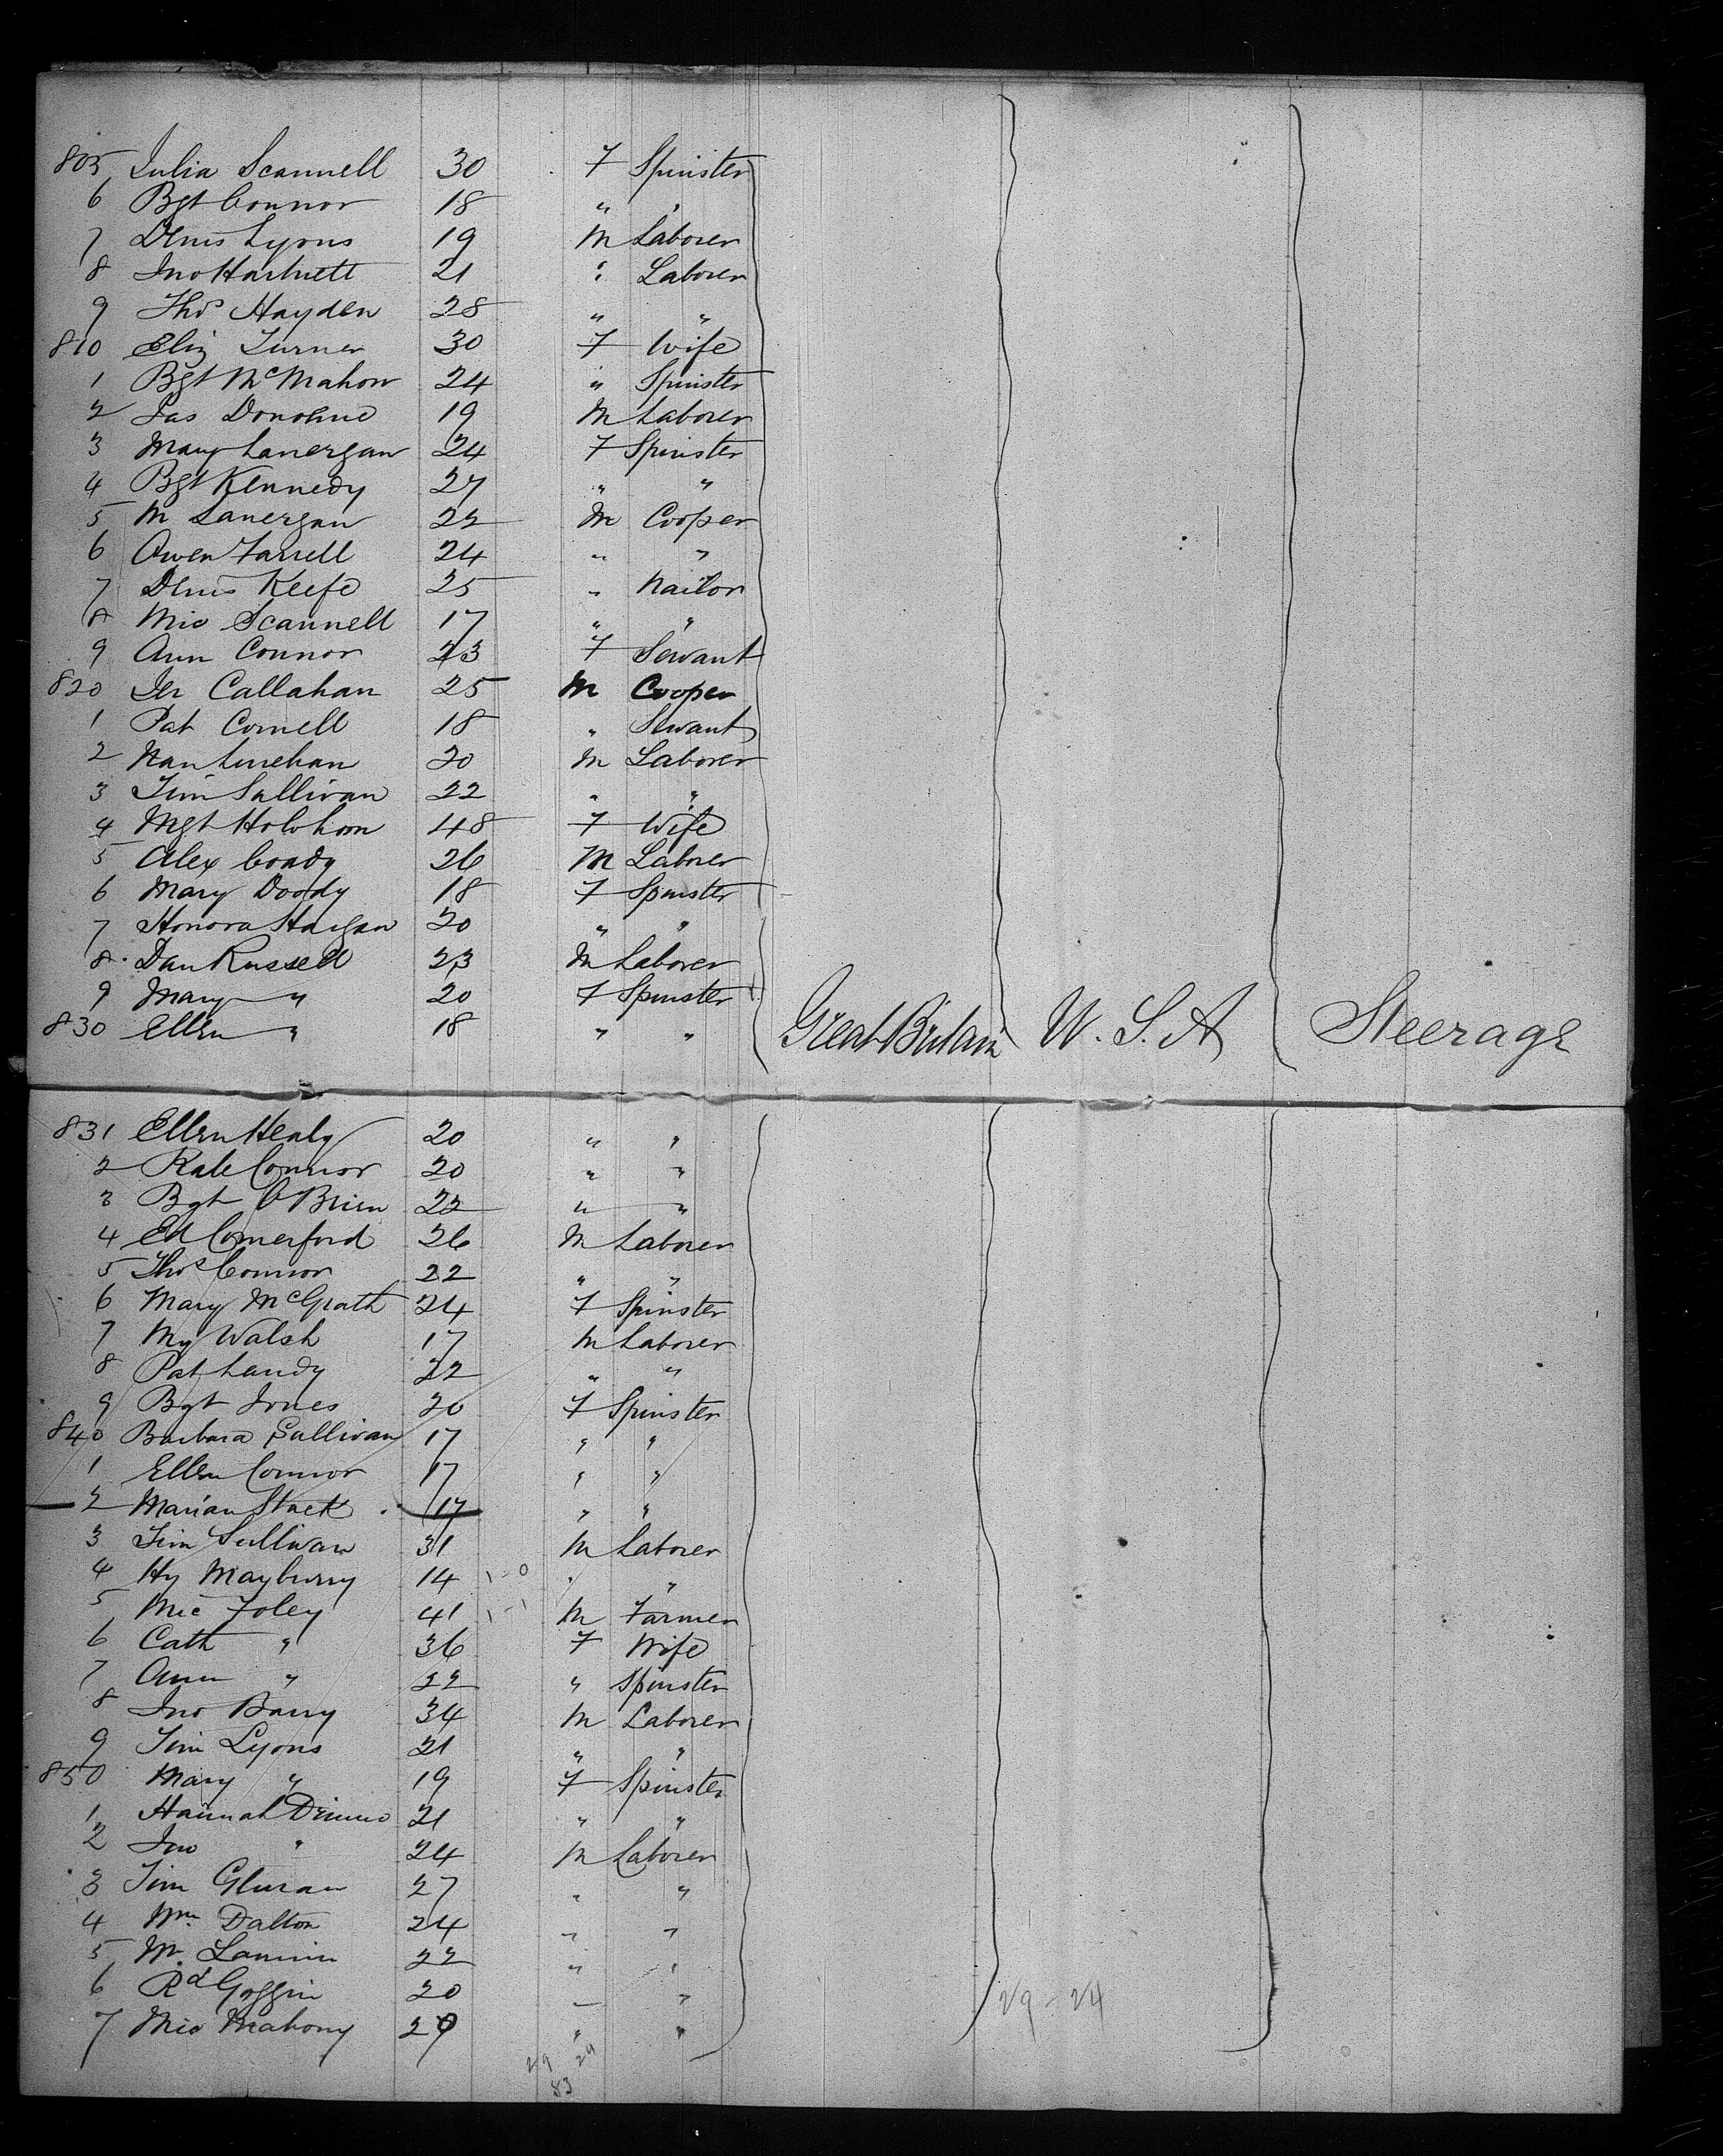 805 Julia Scannell 30 F Spinster
6 Bgt Connor 18 " "
7 Denis Lyons 19 M Laborer
8 Jno Hartnett 21 " Laborer
9 Thos Hayden 28 " "
810 Eliz Turner 30 F Wife
1 Bgt McMahon 24 " Spinster
2 Jas Donohue 19 M Laborer
3 Mary Lanergan 24 F Spinster
4 Bgt Kennedy 27 " "
5 M Lanergan 22 M Cooper
6 Owen Farrell 24 " "
7 Denis Keefe 25 " Nailor
8 Mic Scannell 17 " "
9 Ann Connor 23 F Servant
820 Jer Callahan 25 M Cooper
1 Pat Connell 18 " Servant
2 Nan Linehan 20 M Laborer
3 Tim Sullivan 22 " "
4 Mgt 48 F Wife
5 Alex Coady 26 M Laborer
6 Mary Doody 18 F Spinster
7 Honora 20 " "
8 Dan Russell 23 M Laborer
9 Mary " 20 F Spinster
830 Ellen " 18 " " Great Britain U.S.A Steerage
831 Ellen Healy 20 " "
2 Kate Connor 20 " "
3 Bgt O'Brien 22 " "
4 Ed Comerford 26 M Laborer
5 Thos Connor 22 " "
6 Mary McGrath 24 F Spinster
7 My Walsh 17 M Laborer
8 Pat Landy 22 " "
9 Bgt Jones 20 F Spinster
840 Barbara Sullivan 17 " "
1 Ellen Connor 17 " "
2 Marian Stack 17 " "
3 Tim Sullivan 31 M Laborer
4 Hy Mayburry 14 1-0 " "
5 Mic Foley 41 1-1 M Farmer
6 Cath " 36 F Wife
7 Ann " 22 " Spinster
8 Jno Barry 34 M Laborer
9 Tim Lyons 21 " "
850 Mary " 19 F Spinster
1 Hannah 21 " "
2 Jno " 24 M Laborer
3 Tim 27 " "
4 Wm Dalton 24 " "
5 M 22 " "
6 Rd Goggin 20 " "
7 Mic Mahony 29 " "
29-24
29 24
53